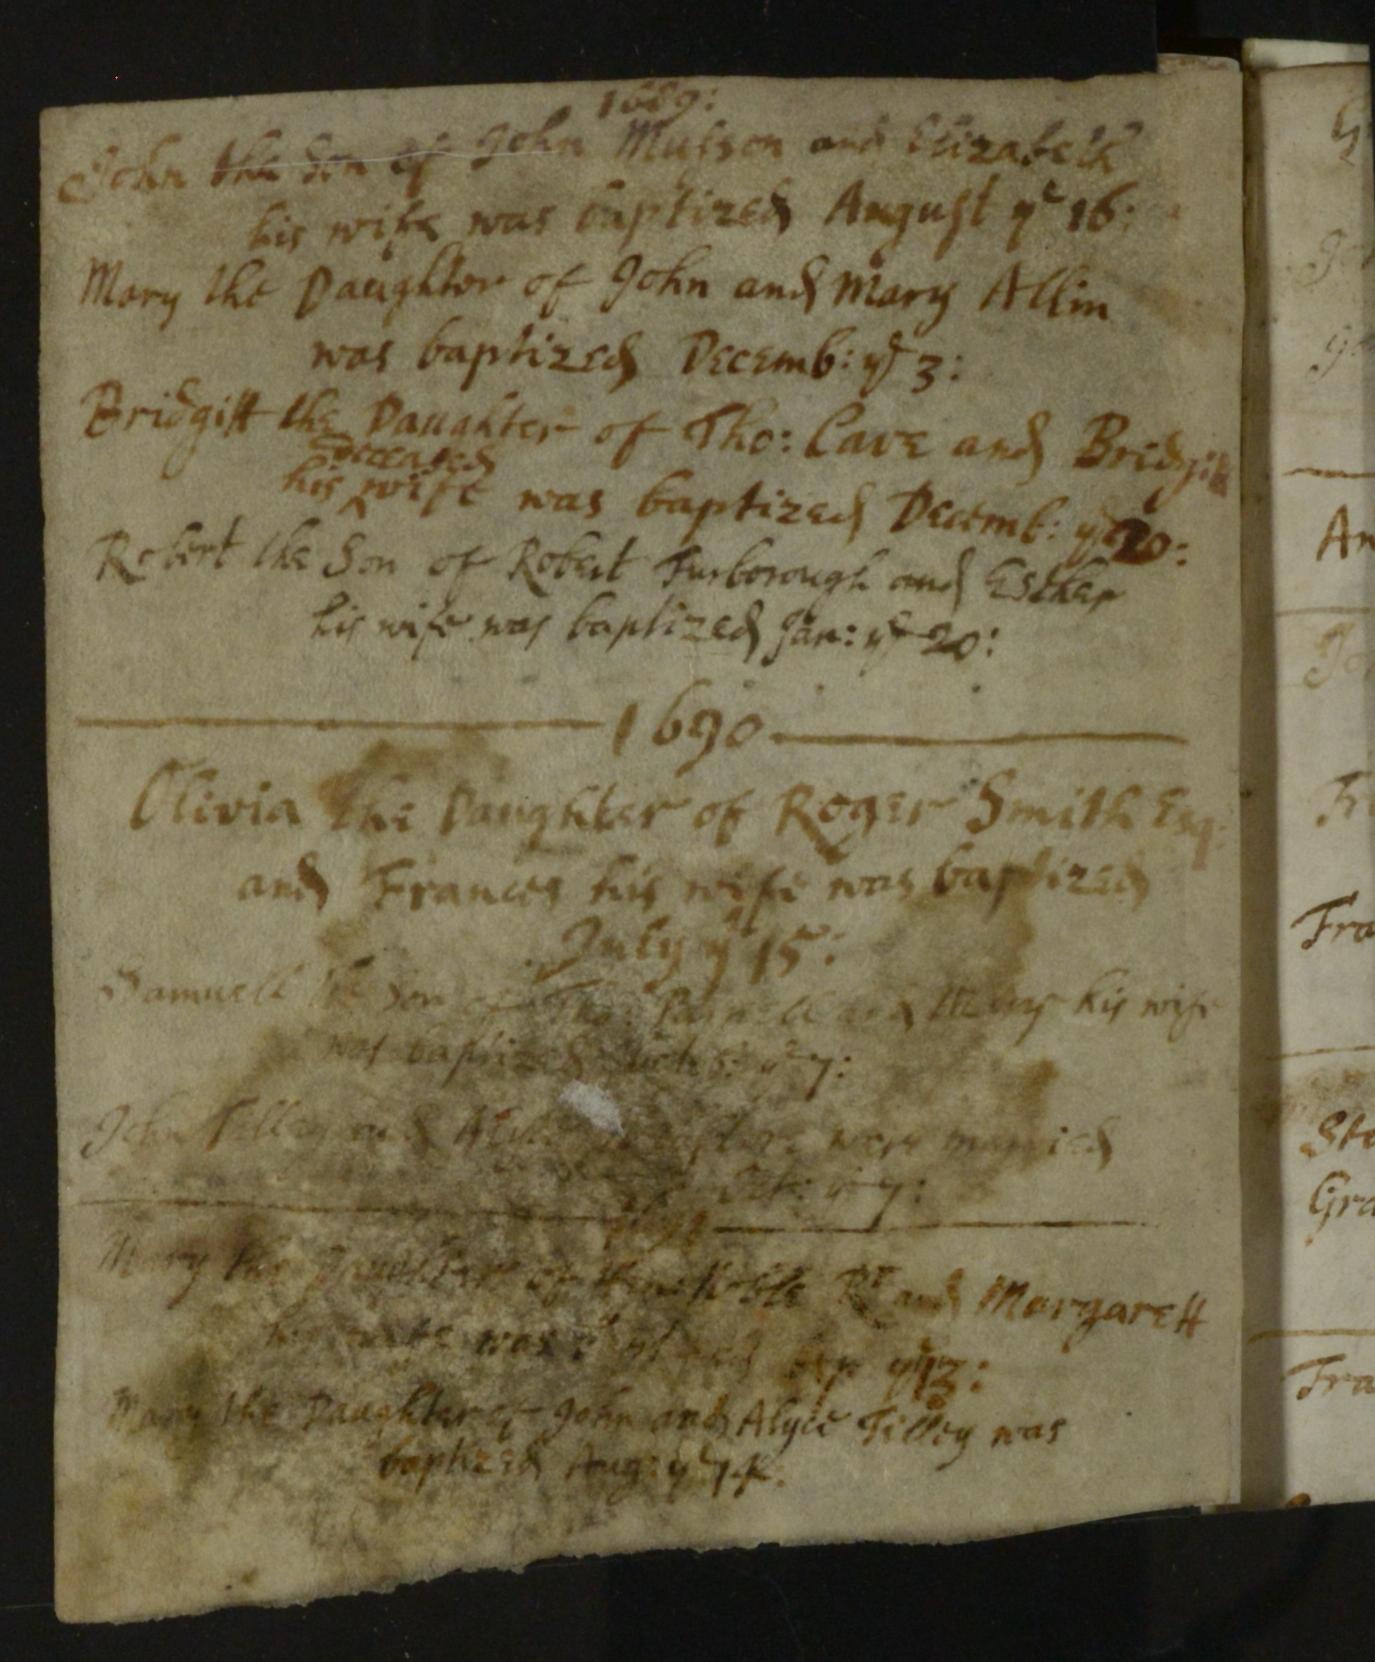 1689:
John the Son of John Musson and Elizabeth
his wife was baptized August yᵉ 16:
Mary the Daughter of John and Mary Allin
was baptized Decemb: yᵉ 3:
Bridgitt the Daughter of Tho: Cave and Bridgitt
deceased
his ^ wife was baptized Decemb: yᵉ 20:
Robert the Son of Robert Furborough and Esther
his wife was baptized Jan: yᵉ 20:
1690
Olivia the Daughter of Roger Smith Esq:
and Frances his wife was baptized
July yᵉ 15:
Samuell the Son of Tho: and Mary his wife
was baptized yᵉ 7:
John Tilley and were married
Oct: yᵉ 7:
Mary the Daughter of and Margarett
his wife was yᵉ 13:
Mary the Daughter of John and Alyce Tilley was
baptized Aug: yᵉ
An
Fra
Gra
Fra